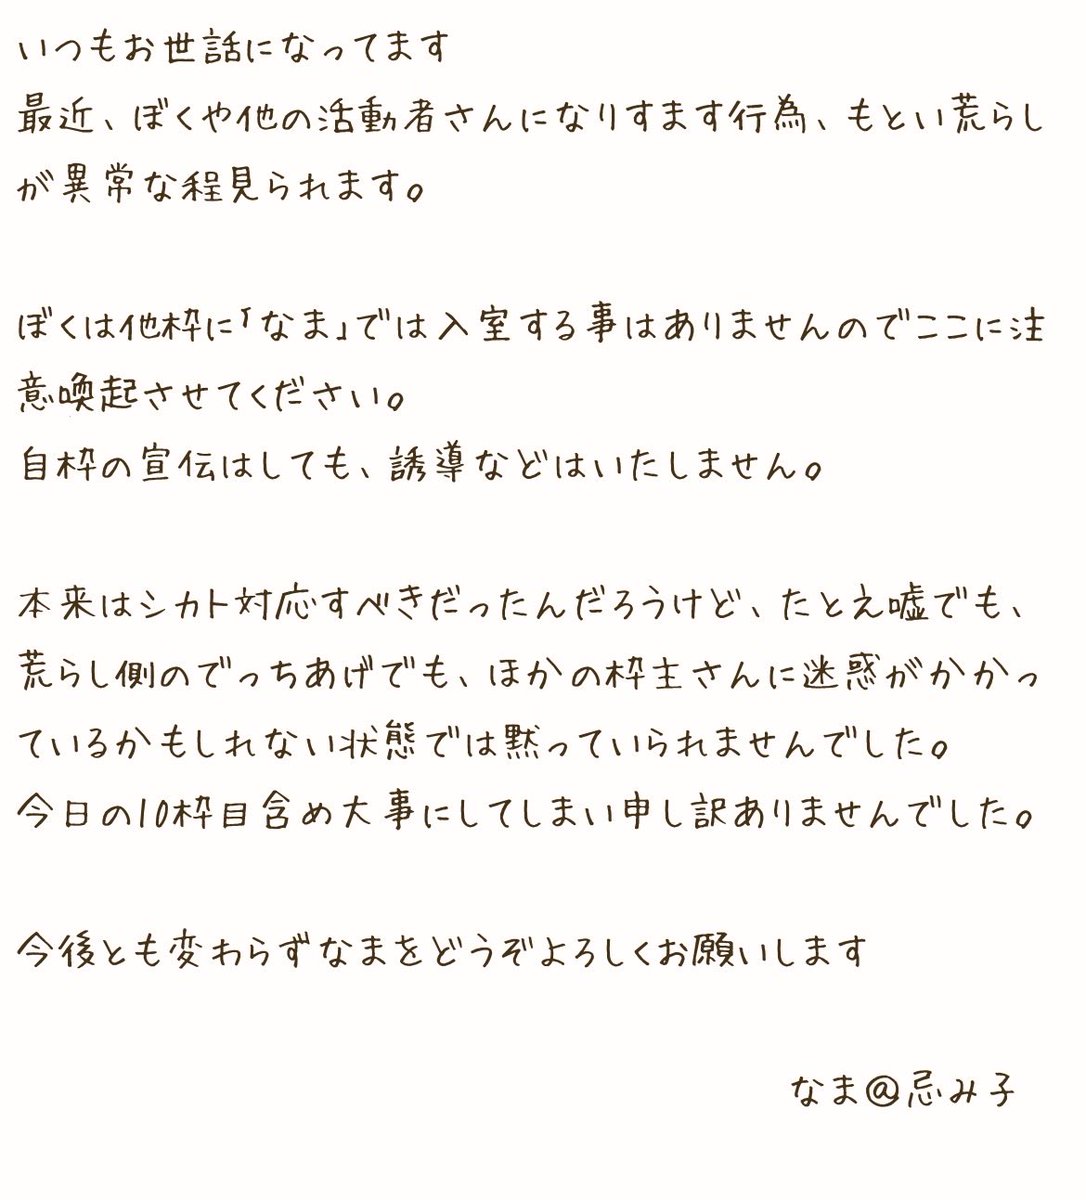 いつもお世話になってます
最近、ぼくや他の活動者さんになりすます行為、もとい荒らし
が異常な程見られます。
ぼくは他枠に「なま」では入室する事はありませんのでここに注
意喚起させてください。
自枠の宣伝はしても、誘導などはいたしません。
本来はシカト対応すべきだったんだろうけど、たとえ嘘でも、
荒らし側のでっちあげでも、ほかの枠主さんに迷惑がかかっ
ているかもしれない状態では黙っていられませんでした。
今日の10枠目含め大事にしてしまい申し訳ありませんでした。
今後とも変わらずなまをどうぞよろしくお願いします
なま@忌み子